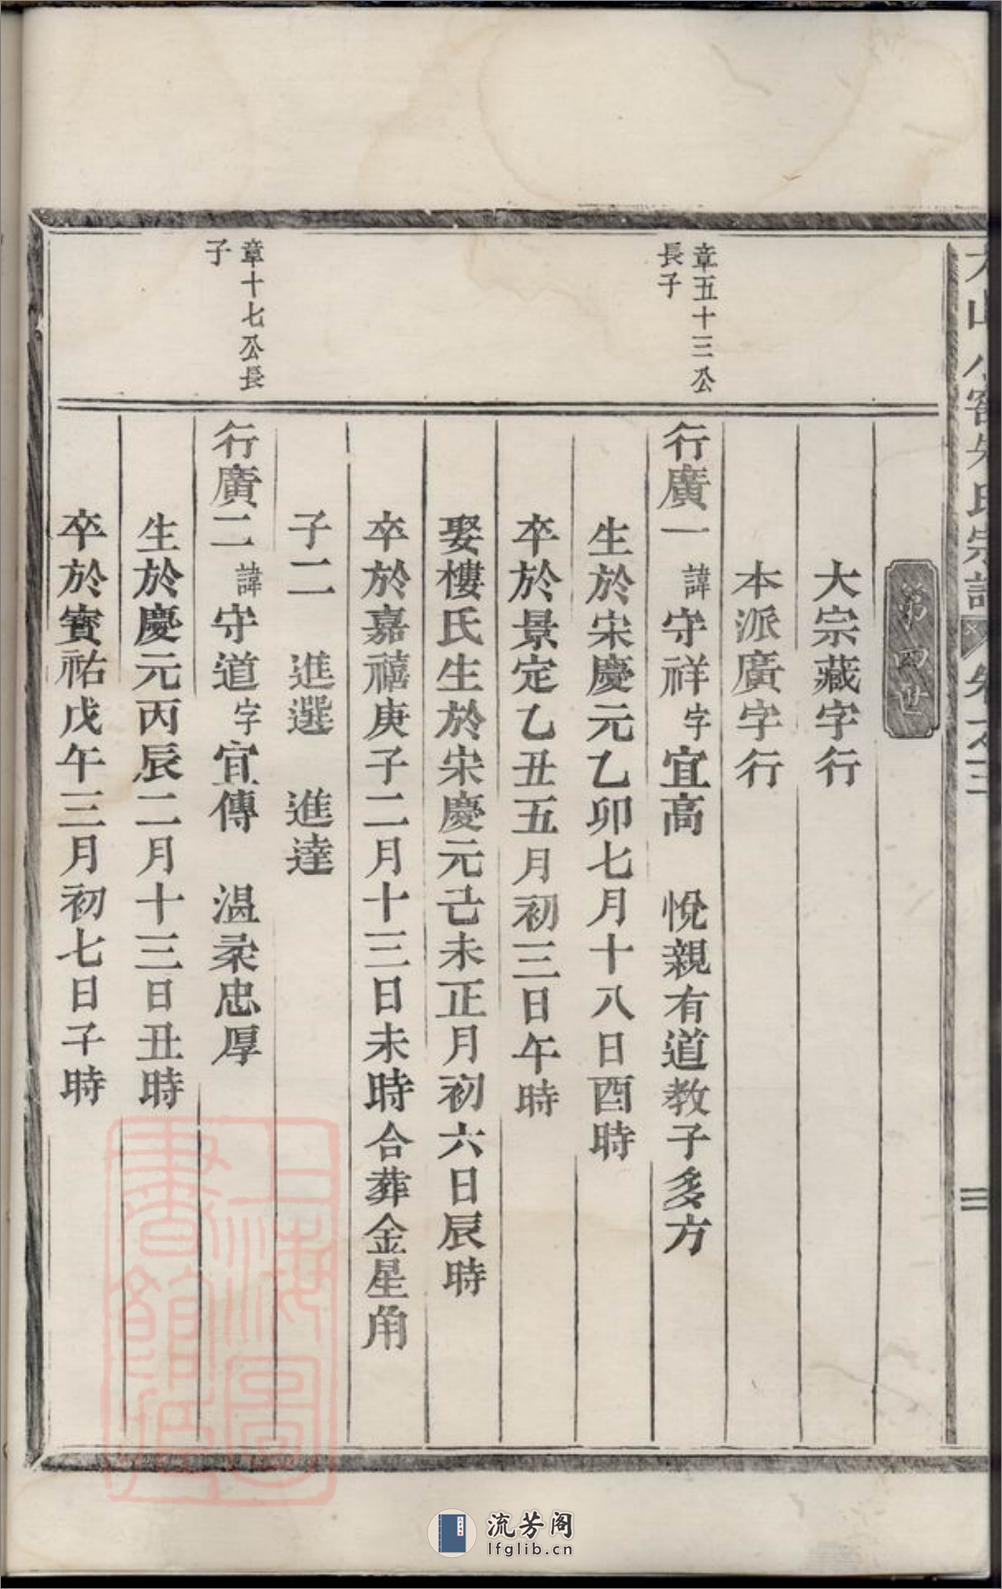 第四世
大宗藏字行
本派廣字行
章五十三公
長子
行廣一 諱守祥字宜高 悅親有道教子多方
生於宋慶元乙卯七月十八日酉時
卒於景定乙丑五月初三日午時
娶樓氏生於宋慶元己未正月初六日辰時
卒於嘉禧庚子二月十三日未時合葬金星角
子二 進選 進達
章十七公長
子
行廣二 諱守道字宜傳 温柔忠厚
生於慶元丙辰二月十三日丑時
卒於寳祐戊午三月初七日子時
三
上海圖
書館藏
流芳阁
lfglib.cn